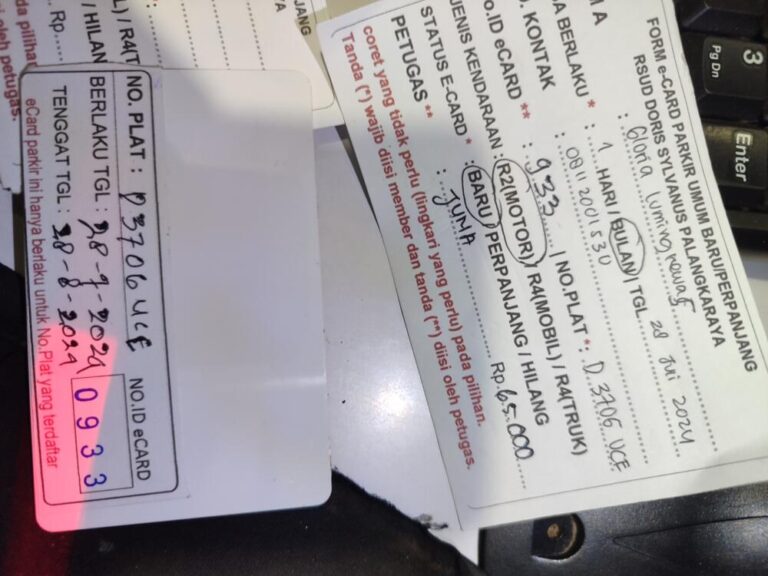 FORM e-CARD PARKIR UMUM BARU/PERPANJANG
RSUD DORIS SYLVANUS PALANGKARAYA
M A : Gloria
A BERLAKU * : 1 HARI / BULAN / TGL 28 Juli 2024
O. KONTAK : 0811 2001 530
O.ID eCARD ** : 933 / NO.PLAT *: D 3706 UCE
JENIS KENDARAAN : R2(MOTOR) / R4(MOBIL) / R4(TRUK)
STATUS E-CARD * : BARU / PERPANJANG / HILANG
PETUGAS ** : JUMA Rp. 65.000
coret yang tidak perlu (lingkari yang perlu) pada pilihan.
Tanda (*) wajib diisi member dan tanda (**) diisi oleh petugas.
NO. PLAT : D 3706 UCE NO.ID eCARD
BERLAKU TGL : 28-7-2024 0933
TENGGAT TGL : 28-8-2024
eCard parkir ini hanya berlaku untuk No.Plat yang terdaftar
JANG
/ R4(T
/ HILAN
Rp.
pada pilihan
oleh petugas.
3
Pg Dn
Enter